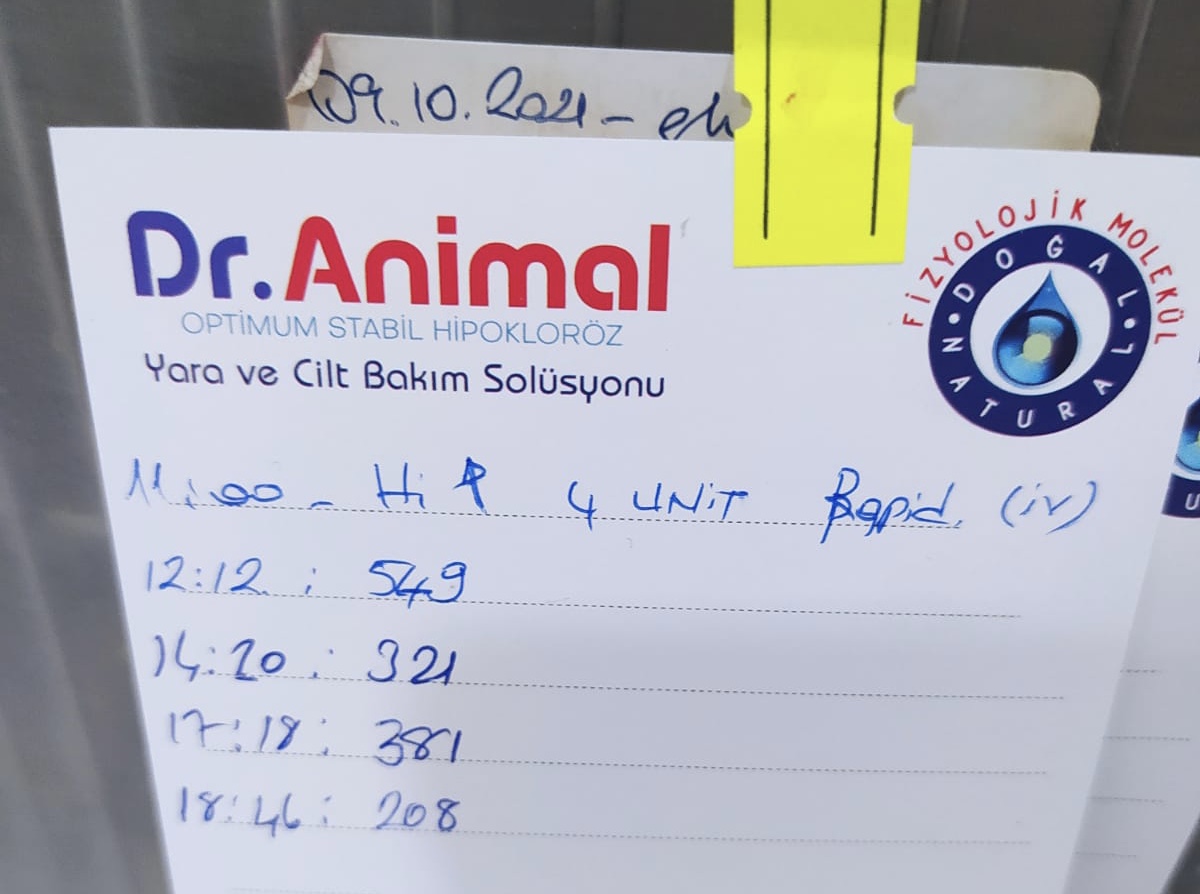 09.10.2021 -
Dr.Animal
OPTİMUM STABİL HİPOKLORÖZ
Yara ve Cilt Bakım Solüsyonu
FİZYOLOJİK MOLEKÜL
DOĞAL
NATURAL
11:00 - Hi 4 UNİT Rapid. (iv)
12:12 : 549
14:20 : 321
17:18 : 381
18:46 : 208
U